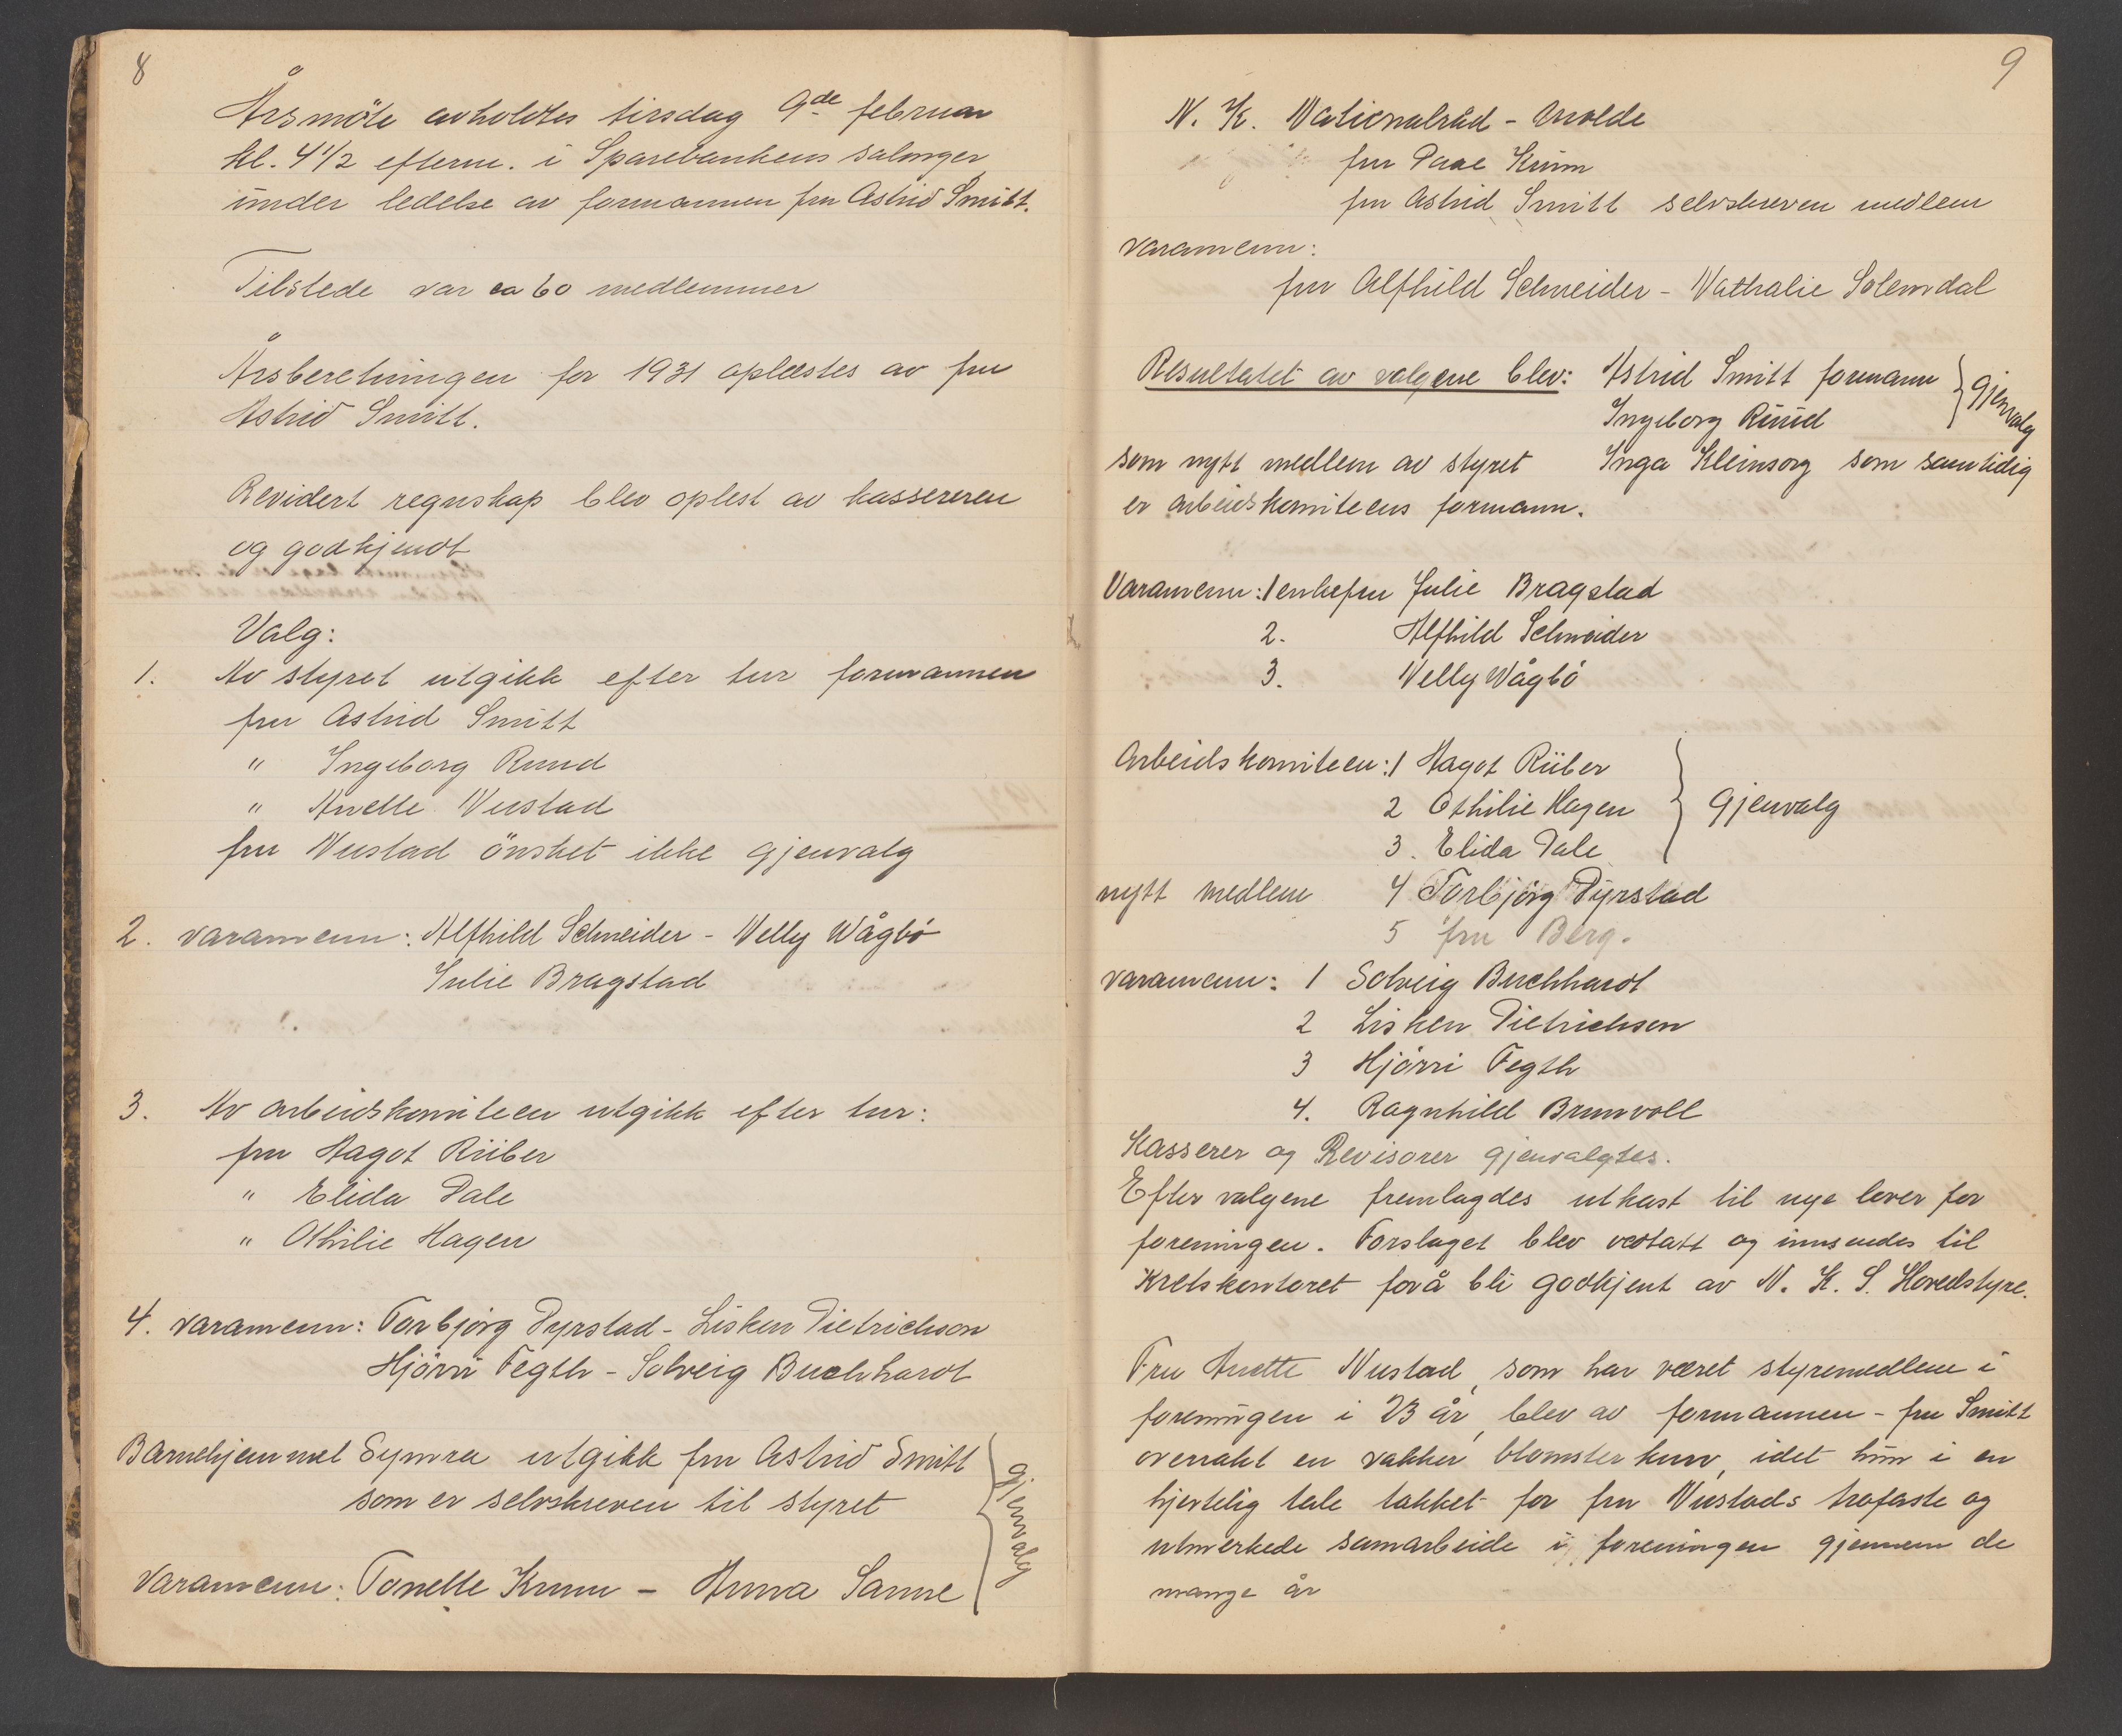 8
Årsmöte avholdtes tirsdag 9de februar
kl. 4 1/2 efterm. i Sparebankens salonger
under ledelse av formannen fru Astrid Smitt.
Tilstede var ca 60 medlemmer
Årsberetningen for 1931 oplæstes av fru
Astrid Smitt.
Revidert regnskap blev oplest av kassereren
og godkjendt
Valg:
1. Av styret utgikk efter tur formannen
fru Astrid Smitt
" Ingeborg Ruud
" Anette Nustad
fru Nustad önsket ikke gjenvalg
2. varamenn: Alfhild Schneider - Nelly Wågbö
Julie Bragstad
3. Av arbeidskomiteen utgikk efter tur:
fru Aagot Riiber
" Elida Dale
" Othilie Hagen
4. varamenn: Torbjörg Dyrstad - Lisken Dietrichson
Hjörri Fegth - Solveig Buchhardt
Barnehjemmet Symra utgikk fru Astrid Smitt
som er selvskreven til styret
Varamenn: Tonette Krum - Anna Sanne
gjenvalg
9
N. K. Nationalråd - Molde
fru Paae Krum
fru Astrid Smitt selvskreven medlem
varamenn:
fru Alfhild Schneider - Nathalie Solemdal
Resultatet av valgene blev: Astrid Smitt formann
Ingeborg Ruud
gjenvalg
som nytt medlem av styret Inga Kleinsorg som samtidig
er arbeidskomiteens formann.
Varamenn: 1 enkefru Julie Bragstad
2. Alfhild Schneider
3. Nelly Wågbö
Arbeidskomiteen: 1 Aagot Riiber
2 Othilie Hagen
3. Elida Dale
gjenvalg
nytt medlem 4 Torbjörg Dyrstad
5 fru Berg.
varamenn: 1 Solveig Buchhardt
2 Lisken Dietrichson
3 Hjörri Fegth
4. Ragnhild Brunvoll
Kasserer og Revisorer gjenvalgtes.
Efter valgene fremlagdes utkast til nye lover for
foreningen. Forslaget blev vedtatt og innsendes til
Kretskontoret forå bli godkjent av N. K. S. Hovedstyre.
Fru Anette Nustad, som har været styremedlem i
foreningen i 23 år, blev av formannen - fru Smitt
overrakt en vakker blomsterkurv, idet hun i en
hjertelig tale takket for fru Nustads trofaste og
utmerkede samarbeide i foreningen gjennem de
mange år